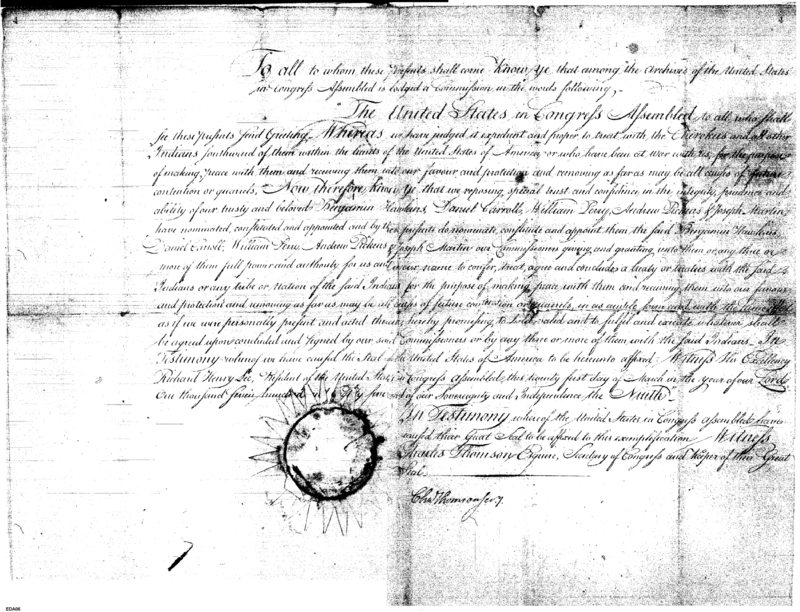 To all to whom these Presents shall come Know ye that among the Archives of the United States
in Congress Assembled is lodged a Commission in the words following,
The United States in Congress Assembled to all who shall
see these presents send Greeting, Whereas we have judged it expedient and proper to treat with the Cherokees and all other
Indians southward of them within the limits of the United States of America or who have been at war with us, for the purpose
of making peace with them and receiving them into our favour and protection and removing as far as may be all causes of future
contention or quarrels, Now therefore Know ye that we reposing special trust and confidence in the integrity, prudence and
ability of our trusty and beloved Benjamin Hawkins, Daniel Carroll, William Perry, Andrew Pickens & Joseph Martin
have nominated, constituted and appointed and by these presents do nominate, constitute and appoint them the said Benjamin Hawkins
Daniel Carroll, William Perry, Andrew Pickens & Joseph Martin our Commissioners giving and granting unto them or any three or
more of them full power and authority for us and in our name to confer, treat, agree and conclude a treaty or treaties with the said
Indians or any tribe or Nation of the said Indians for the purpose of making peace with them and receiving them into our favour
and protection and removing as far as may be all causes of future contention or quarrels, in as ample form and with the same effect
as if we were personally present and acted therein, hereby promising to hold valid and to fulfil and execute whatever shall
be agreed upon concluded and signed by our said Commissioners or by any three or more of them with the said Indians. In
Testimony whereof we have caused the Seal of the United States of America to be hereunto affixed. Witness His Excellency
Richard Henry Lee, President of the United States in Congress assembled, this twenty first day of March in the year of our Lord
One thousand seven hundred and Eighty five and of our Sovereignty and Independence the Ninth.
In Testimony whereof the United States in Congress assembled have
caused their Great Seal to be affixed to this exemplification Witness
Charles Thomson Esquire, Secretary of Congress and keeper of their Great
Seal.
Chas Thomson Secy.
EDA06